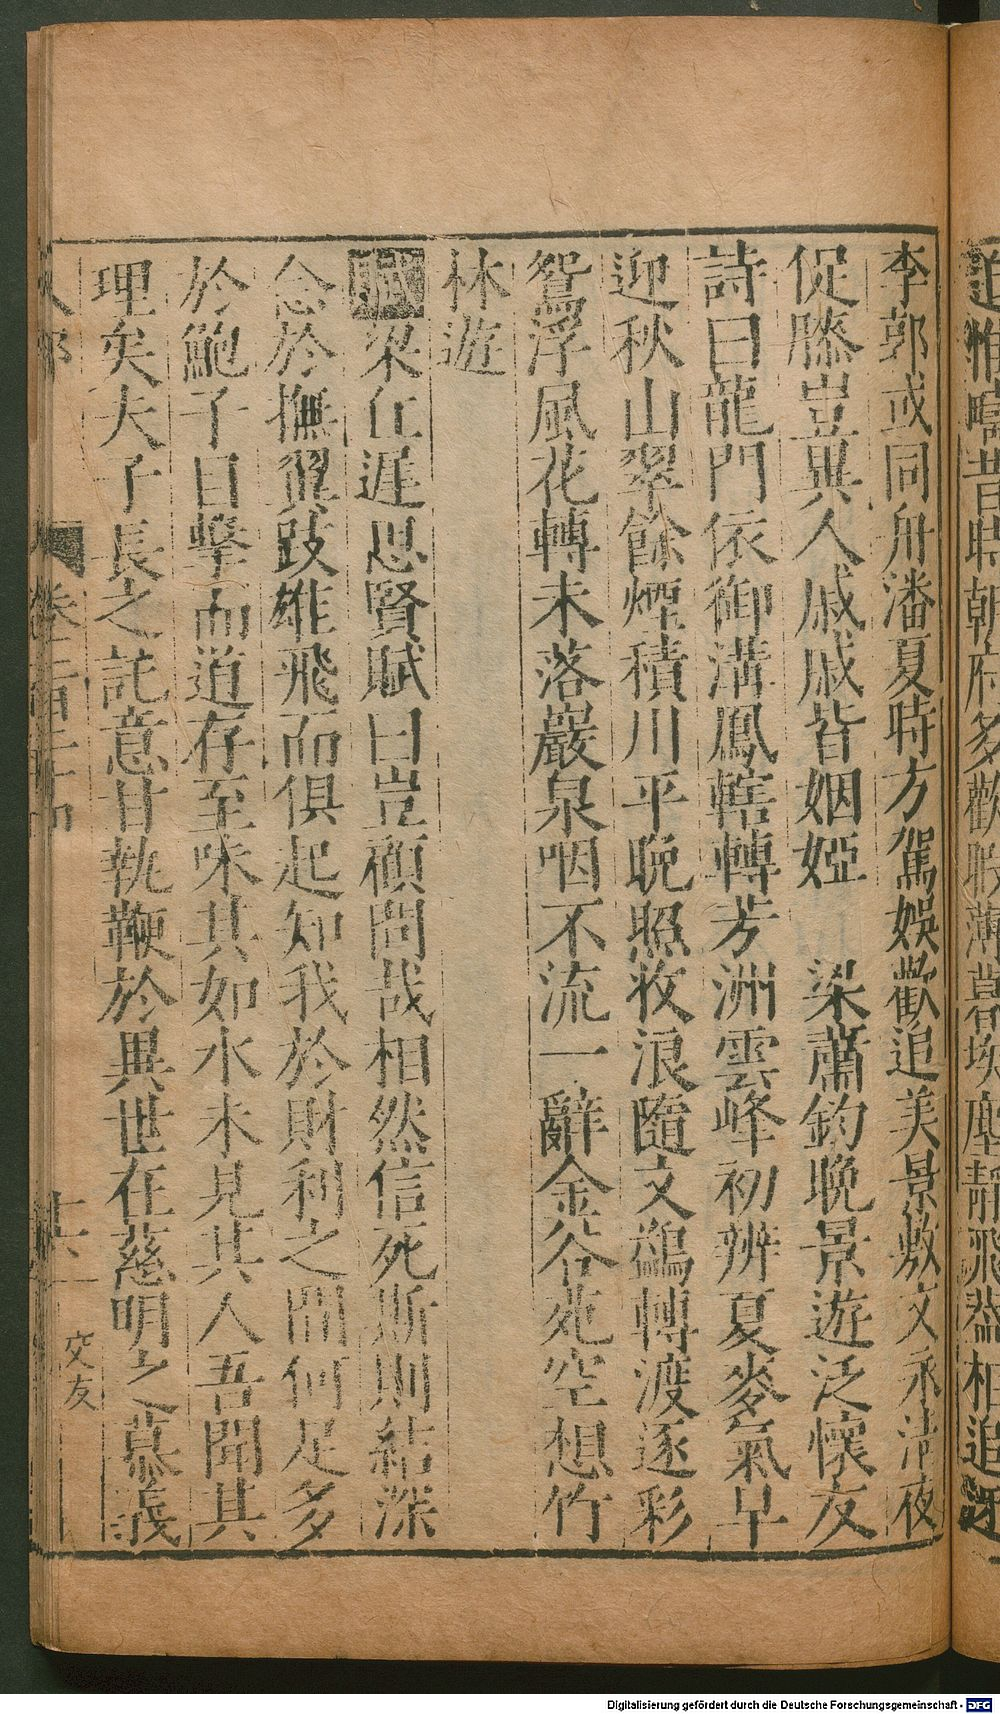 李郭或同舟潘夏時方駕娛歡追美景敷文永清夜
促膝豈異人戚戚皆姻婭　梁蕭鈞晚景遊泛懷友
詩曰龍門依御溝鳳轄轉芳洲雲峰初辨夏麥氣早
迎秋山翠餘煙積川平晚照收浪隨文鷁轉渡逐彩
鴛浮風花轉未落巖泉咽不流一辭金谷苑空想竹
林遊
賦梁任遲思賢賦曰豈顧問哉相然信死斯則結深
念於撫翼跂雄飛而俱起知我於財利之間何足多
於鮑子目擊而道存至味其如水未見其人吾聞其
理矣夫子長之託意甘執鞭於異世在慈明之慕義
人部
卷
十六
交友
Digitalisierung gefördert durch die Deutsche Forschungsgemeinschaft - DFG